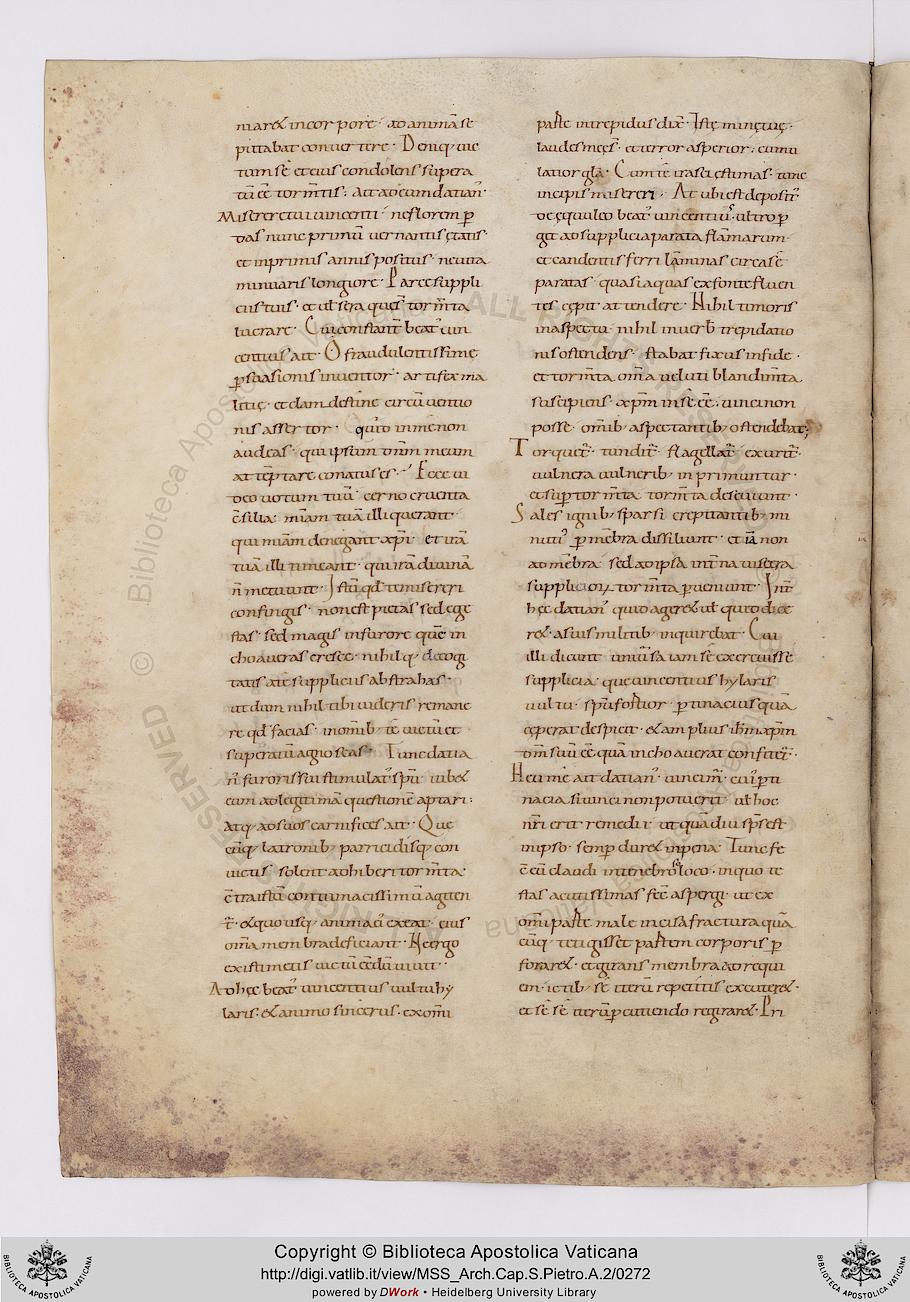 niaret in corpore · ad animā se
pittabat convertere · Deniq; vic
tum sē et eius condolens supera
tū eē torm̄tis · ait ad eum datian᾽·
Miserere tui vincenti · ne florem p̄
das nunc primū vernantis ętatis·
et in primis annis positus · ne vita
minuaris longiore · Parce suppli
ciis tuis · et ut sera q̄ torm̄ta
lucrare · Cui constant̄ beat᾽ vin
centius ait · O fraudulentissimę
p̄suasionis inventor · artifex ma
litię · et clamdestinę circūventio
nis assertor · quid in me non
audeas · qui ipsum dnm̄ meum
at tēptare conatus es · Ecce vi
deo votum tuū · cerno cruenta
c̄silia · miam̄ tuā illi querant·
qui miam̄ denegant xp̄i · et irā
tuā illi timeant · qui irā divinā
n̄ metuunt · Istū qd̄ te misereri
confingis · non est pietas sed ege
stas · sed magis in furore quē in
choaveras cresce · nihilq; de cogi
tatis at̄ suppliciis abstrahas ·
ut dum nihil tibi videris remane
re qd̄ facias · in omīb; te victū et
superatū agnoscas · Tunc datia
n᾽ furoris sui stimulat᾽ spū · iubet
eum ad legitimā questionē aptari :
atq; ad suos carnifices ait · Que
cūq; latronib; parricidisq; con
victis solent adhiberi torm̄ta·
c̄tra istū contumacissimū agen
t̄ · et quousq; anima ei᾽ exeat · eius
om̄a membra deficiant · Nec ergo
existimetis victū eēdū vivit ·
Ad hęc beat᾽ vincentius vultu hy
laris · et animo sincerus · ex omi
parte intrepidus dix̄ · Istę minę tuę·
laudes meę s̄ · et terror asperior · cumu
latior glā · Cum te irasci estimas · tunc
incipis misereri · At ubi est deposit᾽
de ęquuleo beat᾽ vincentius · ultro p̄
git ad supplicia parata flāmarum·
et candentis ferri lāminas circa sē
paratas · quasi aquas ex fonte fluen
tes cępit attendere · Nihil timoris
in aspectu · nihil in verb trepidatio
nis ostendens · stabat fixus in fide ·
et torm̄ta om̄a veluti blandim̄ta
suscipiens · xp̄m in sē eē · vinci non
posse · omīb; aspectantib; ostendebat;
Torquet᾽· tundit᾽ · flagellat᾽ exurit᾽·
vulnera vulnerib; inprimuntur ·
et sup torm̄ta torm̄ta deseviunt ·
Sales ignib; sparsi crepitantib; mi
nuti᾽ p̄ mēbra dissiliunt · et iā non
ad mēbra · sed ad ipsa int̄na viscera
supplicior torm̄ta p̄veniunt · Int̄
hęc datian᾽ quid ageret ut quid dice
ret · a suis militib; inquirebat · Cui
illi dicunt · univ̄sa iam sē exercuisse
supplicia · que vincentius hylaris
vultu · spū fortior · p̄tinacius quā
cęperat despicit · et amplius ihm̄ xpm̄
dom̄ suū eē quā inchoaverat confitet᾽·
Heu me ait datian᾽ · vincim᾽ · cui᾽ p̄ti
nacia si vinci non potuerit · ut hoc
nr̄i erit remedii · ut quādiu sp̄s est
in ipso · semp̄ duret in pena · Tunc fe
c̄ eū claudi in tenebroso loco · in quo te
stas acutissimas fec̄ aspergi · ut ex
omī parte male incisa fractura quā
cūq; tetigisset partem corporis p̄
foraret · et girans membra ad requi
em · ictib; sē iterū repetitis excuteret·
et sē sē iterū percutiendo regiraret · Pri
Copyright © Biblioteca Apostolica Vaticana
http://digi.vatlib.it/view/MSS_Arch.Cap.S.Pietro.A.2/0272
powered by DWork • Heidelberg University Library